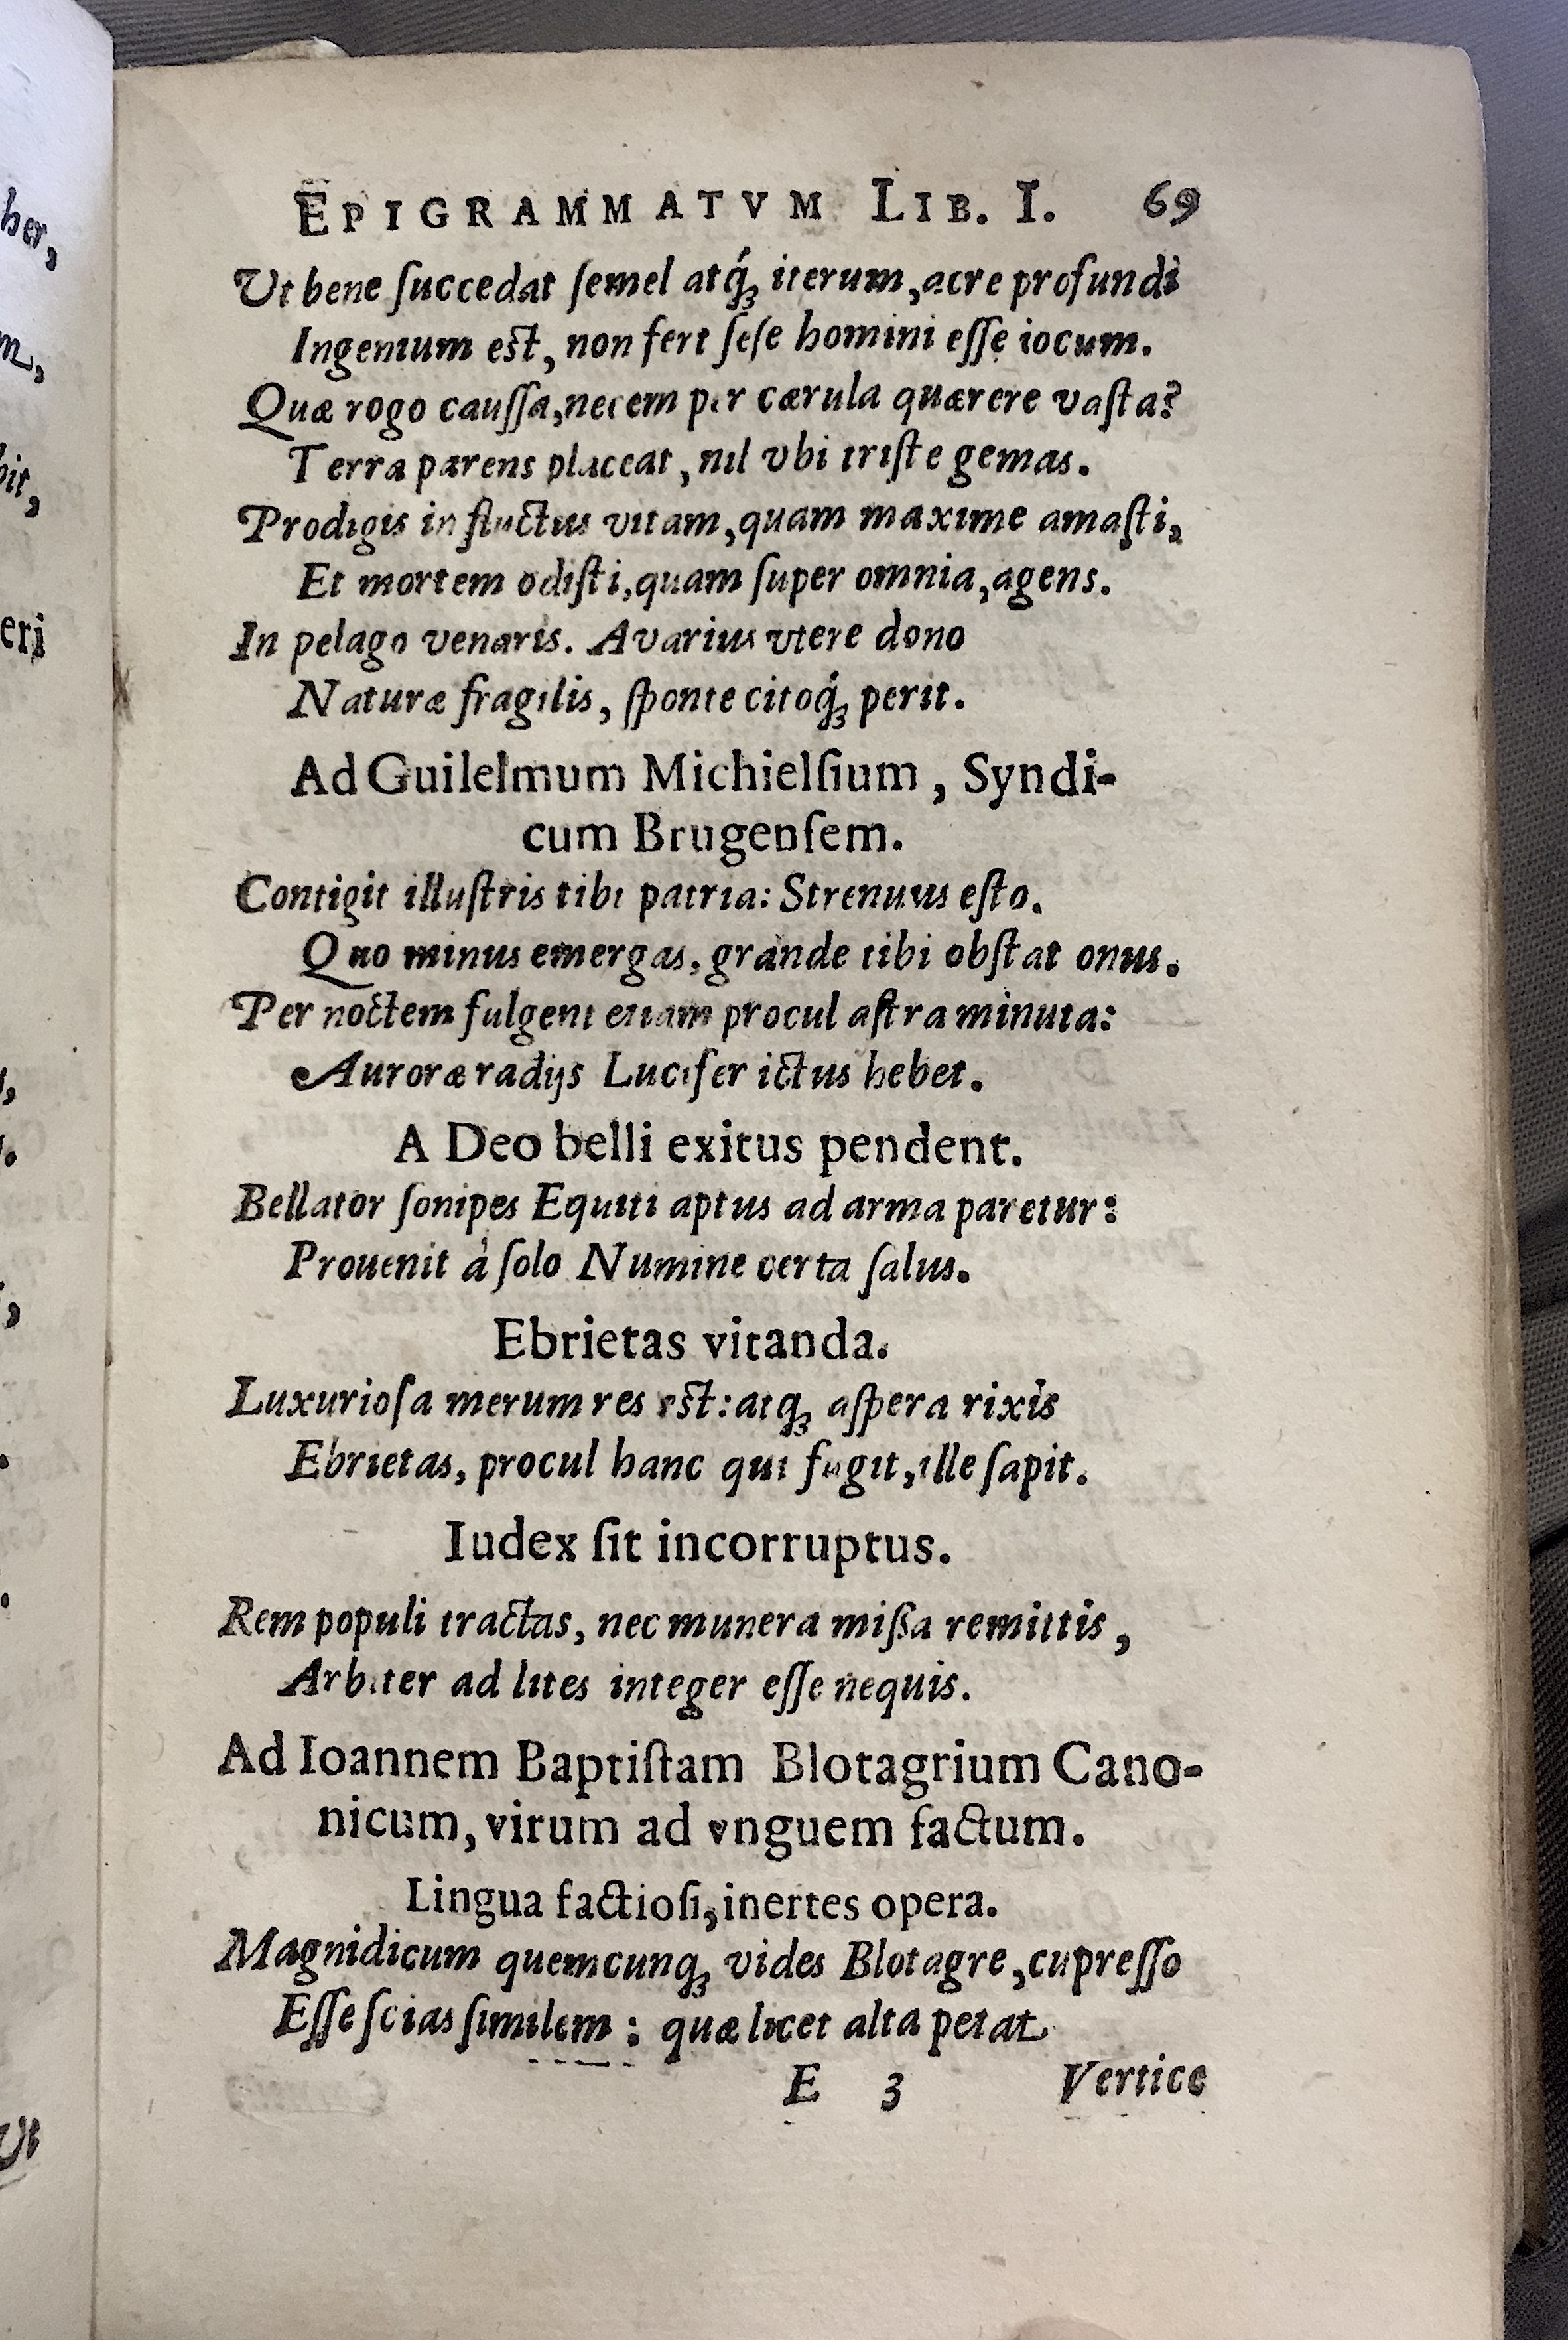 EPIGRAMMATVM LIB. I. 69
Ut bene ſuccedat ſemel atq́ꝫ iterum, acre profundi
Ingenium eſt, non fert ſeſe homini eſſe iocum.
Quæ rogo cauſſa, necem per cærula quærere vaſta?
Terra parens placeat, nil vbi triſte gemas.
Prodigis in fluctus vitam, quam maxime amaſti,
Et mortem odiſti, quam ſuper omnia, agens.
In pelago venaris. Avarius vtere dono
Naturæ fragilis, ſponte citoq́ꝫ perit.
Ad Guilelmum Michielſium, Syndi-
cum Brugenſem.
Contigit illuſtris tibi patria: Strenuus eſto.
Quo minus emergas, grande tibi obſtat onus.
Per noctem fulgent etiam procul aſtra minuta:
Auroræ radijs Lucifer ictus hebet.
A Deo belli exitus pendent.
Bellator ſonipes Equiti aptus ad arma paretur:
Prouenit à ſolo Numine certa ſalus.
Ebrietas vitanda.
Luxurioſa merum res eſt: atqꝫ aſpera rixis
Ebrietas, procul hanc qui fugit, ille ſapit.
Iudex ſit incorruptus.
Rem populi tractas, nec munera miſſa remittis,
Arbiter ad lites integer eſſe nequis.
Ad Ioannem Baptiſtam Blotagrium Cano-
nicum, virum ad vnguem factum.
Lingua factioſi, inertes opera.
Magnidicum quemcunqꝫ vides Blotagre, cupreſſo
Eſſe ſcias ſimilem: quæ licet alta petat
E 3 Vertice
her,
bit,
eri
Ut